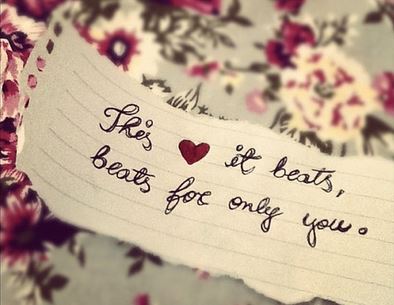 This ♥ it beats,
beats for only you.